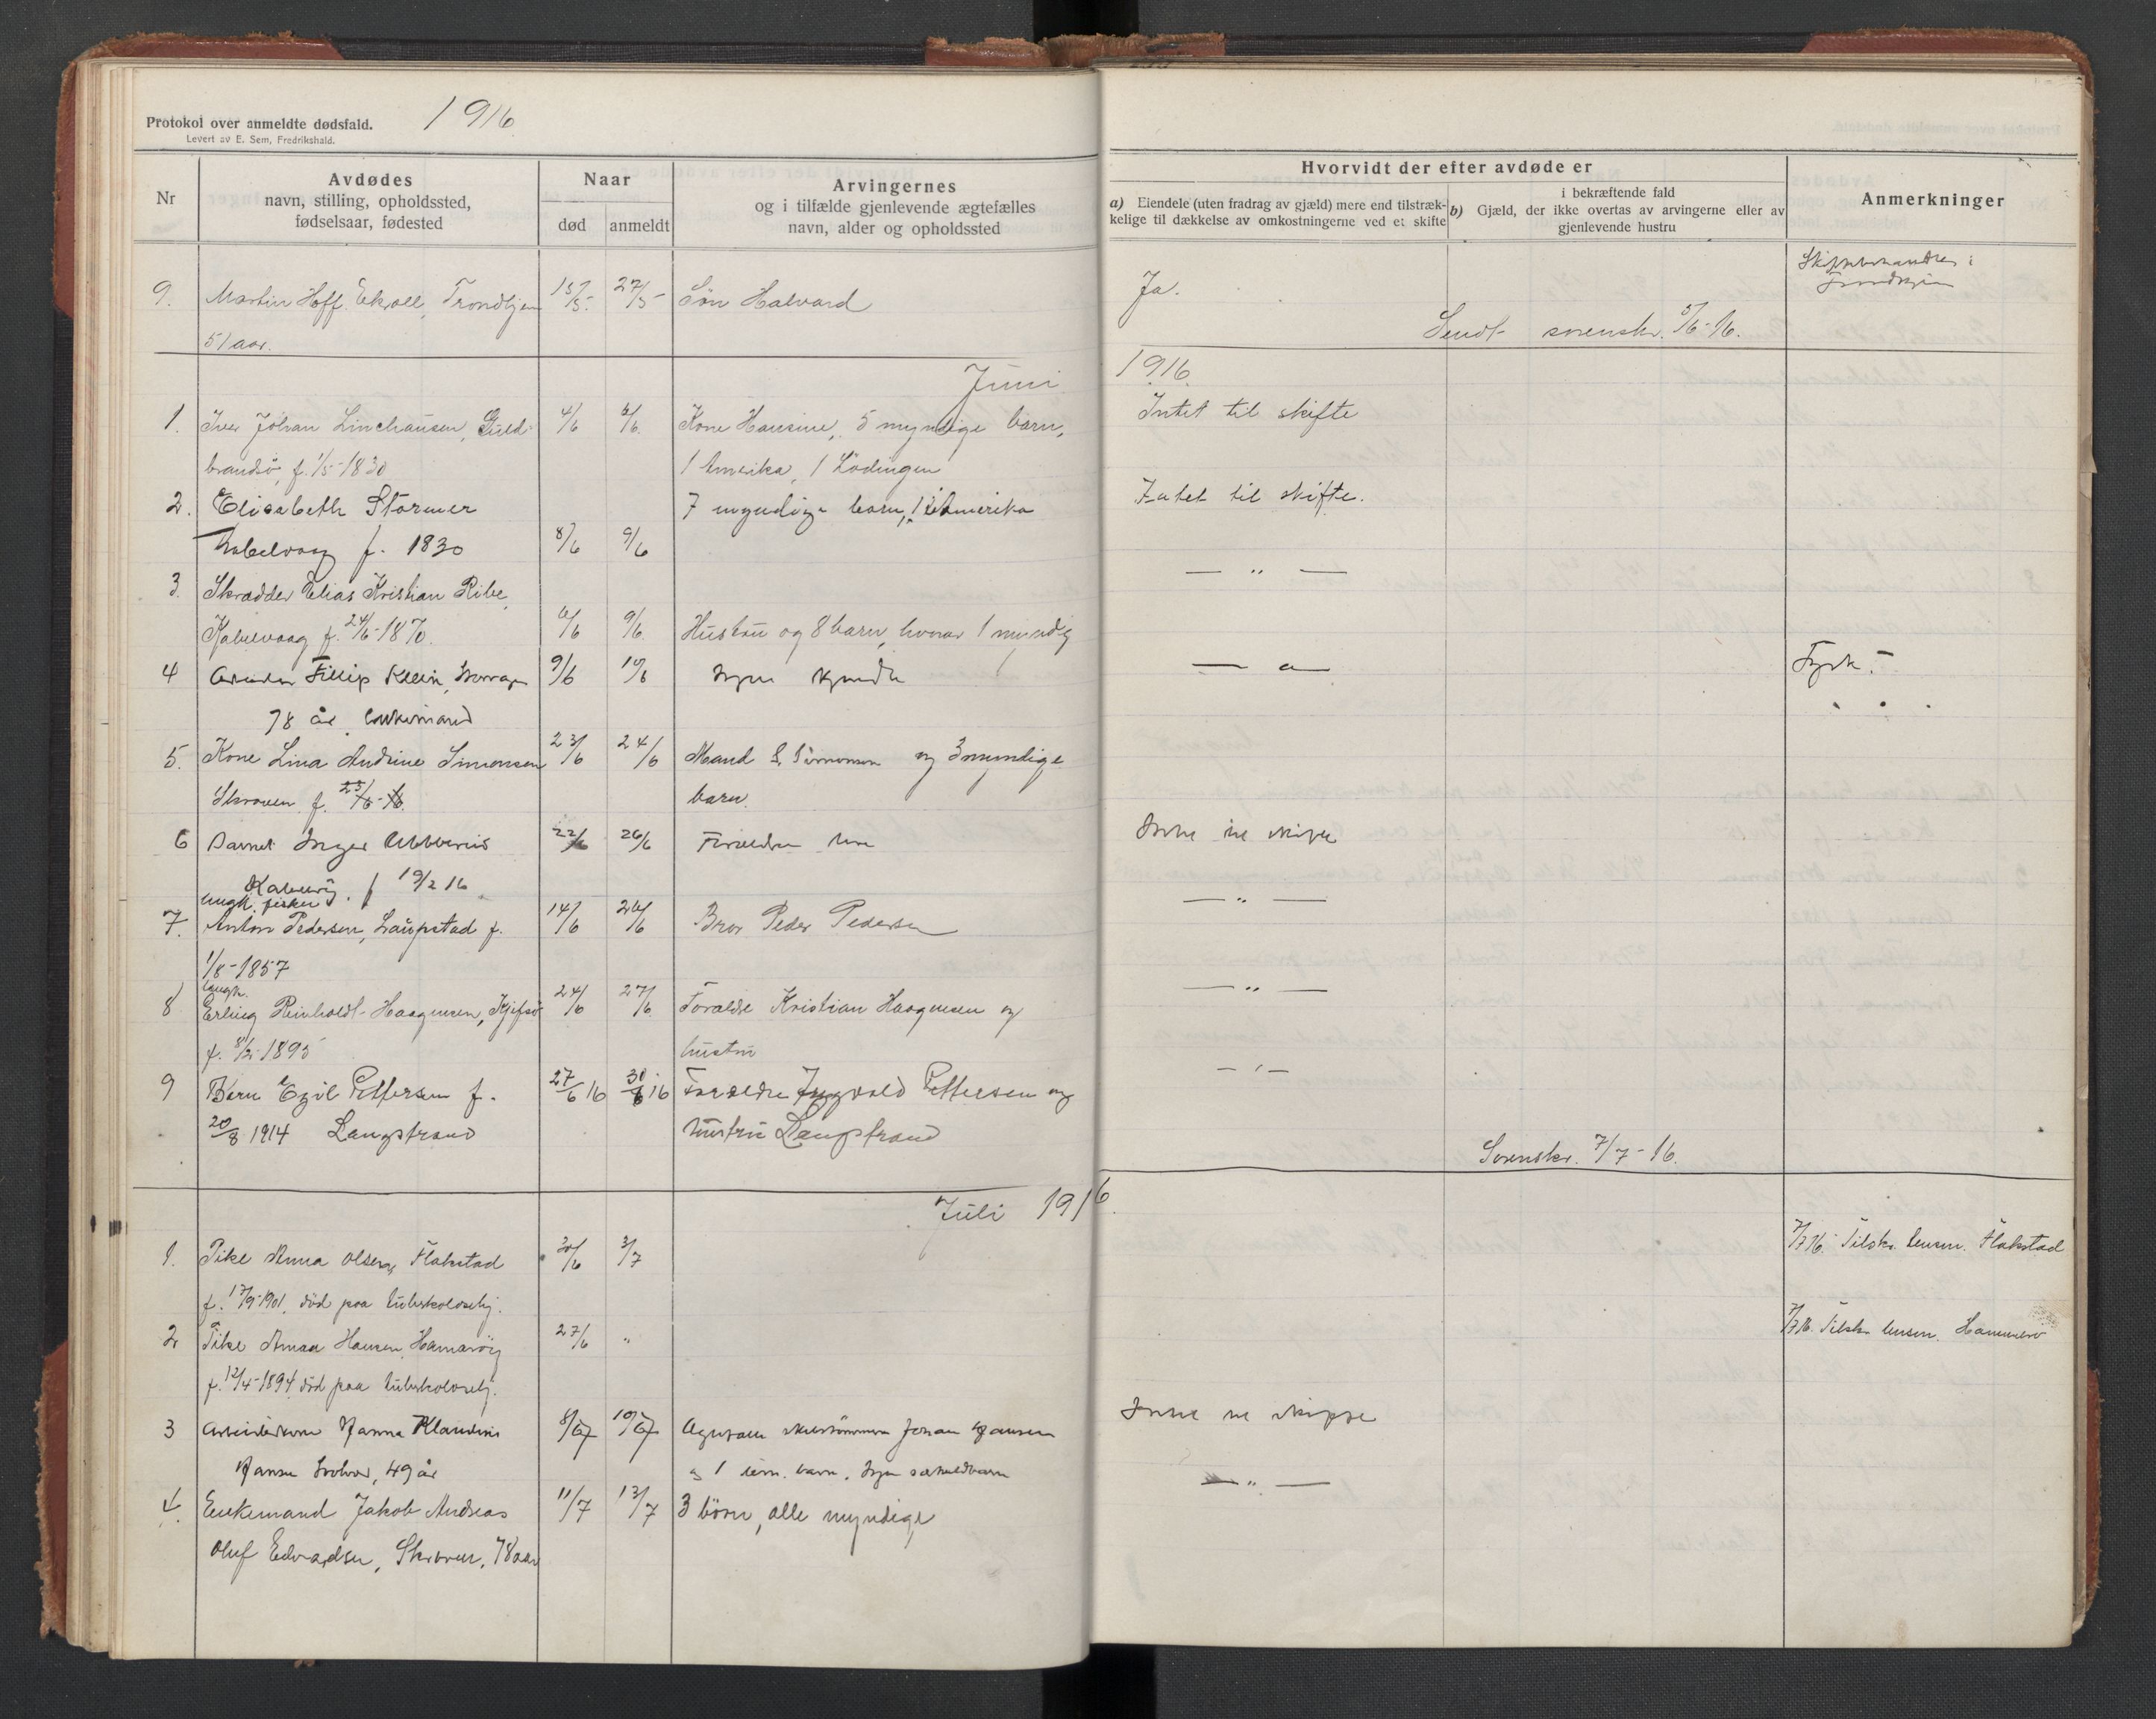 1916
Protokol over anmeldte dødsfald.
Levert av E. Sem, Fredrikshald.
Nr
Avdødes
navn, stilling, opholdssted,
fødselsaar, fødested
Naar
død
anmeldt
Arvingernes
og i tilfælde gjenlevende ægtefælles
navn, alder og opholdssted
Hvorvidt der efter avdøde er
a) Eiendele (uten fradrag av gjæld) mere end tilstræk-
kelige til dækkelse av omkostningerne ved et skifte
i bekræftende fald
b) Gjæld, der ikke overtas av arvingerne eller av
gjenlevende hustru
Anmerkninger
9. Martin Hoff Ekroll, Trondhjem 15/5- 27/5- Søn Halvard Ja.
51 aar. Sendt sorenskr. 5/6-16.
Juni 1916.
1. Iver Johan Linehausen, Guld- 4/6 6/6. Kone Hansine, 5 myndige barn, Intet til skifte
brandsö, f. 1/5-1830 1 Amerika, 1 Lödingen
2. Elisabeth Störmer 7 myndige barn, 1 i Amerika Intet til skifte.
Kabelvaag f. 1830 8/6 9/6
3. Skrædder Elias Kristian Ribe, — " —
Kabelvaag f. 24/6-1870. 6/6 9/6. Hustru og 8 barn, hvorav 1 myndig
4 Fillip Klein, 9/6 10/6 Ingen kjendte — " — Tysk.
78 år, enkemand
5. Kone Lina Andrine Simonsen 23/6 24/6 Mand S. Simonsen og 3 myndige
Skroven f. 23/6-16. barn.
6 Barnet Inger 22/6 26/6 Forældre Ikke til skifte
Kabelvåg. f 19/2 16
ungk. fisker
7. Anton Pedersen, Laupstad f. 14/6 26/6 Bror Peder Pedersen — " —
1/8-1857
ungk.
8 Erling Reinholdt Haagensen, 24/6 27/6. Forældre Kristian Haagensen og — " —
f. 8/2-1895 hustru
9 Barn Egil Pettersen f. 27/6 16 30/6 16 Forældre Ingvald Pettersen og — " —
20/8 1914 Langstrand hustru Langstrand
Sorenskr. 7/7-16.
Juli 1916.
1. Pike Anna Olsen, Flakstad 30/6 3/7 7/7 16. Tilskr. lensm. Flakstad
f. 17/9-1901, död paa tuberkolosehj.
2 Pike Anna Hansen, Hamaröy 27/6 " 7/7 16. Tilskr. lensm. Hammerö
f. 12/4-1894 död paa tuberkolosehj.
3 Arbeiderkone Hanna Klaudine 8/7 10/7 Johan Hansen Ikke til skifte
Hansen Svolvær, 49 år og 1 barn. Ingen særkuldbarn
4. Enkemand Jakob Andreas 11/7 13/7 3 börn, alle myndige — " —
Oluf Edvardsen, Skroven, 78 aar